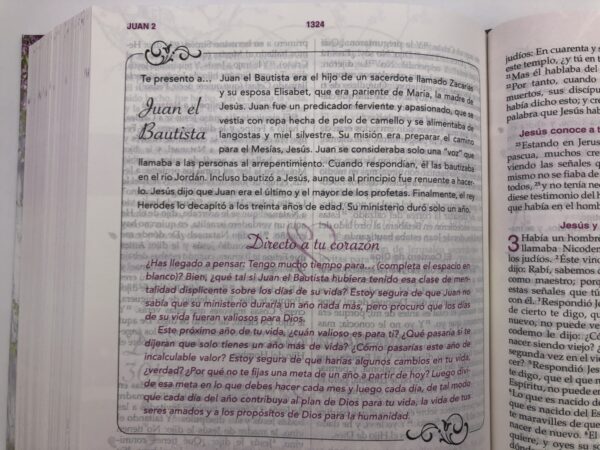 JUAN 2
1324
Te presento a...
Juan el
Bautista
Juan el Bautista era el hijo de un sacerdote llamado Zacarías
y su esposa Elisabet, que era pariente de María, la madre de
Jesús. Juan fue un predicador ferviente y apasionado, que se
vestía con ropa hecha de pelo de camello y se alimentaba de
langostas y miel silvestre. Su misión era preparar el camino
para el Mesías, Jesús. Juan se consideraba solo una "voz" que
llamaba a las personas al arrepentimiento. Cuando respondían, él las bautizaba
en el río Jordán. Incluso bautizó a Jesús, aunque al principio fue renuente a hacer-
lo. Jesús dijo que Juan era el último y el mayor de los profetas. Finalmente, el rey
Herodes lo decapitó a los treinta años de edad. Su ministerio duró solo un año.
Directo a tu corazón
¿Has llegado a pensar: Tengo mucho tiempo para... (completa el espacio en
blanco)? Bien, ¿qué tal si Juan el Bautista hubiera tenido esa clase de men-
talidad displicente sobre los días de su vida? Estoy segura de que Juan no
sabía que su ministerio duraría un año nada más, pero procuró que los días
de su vida fueran valiosos para Dios.
Este próximo año de tu vida, ¿cuán valioso es para ti? ¿Qué pasaría si te
dijeran que solo tienes un año más de vida? ¿Cómo pasarías este año de
incalculable valor? Estoy segura de que harías algunos cambios en tu vida,
¿verdad? ¿Por qué no te fijas una meta de un año a partir de hoy? Luego divi-
de esa meta en lo que debes hacer cada mes y luego cada día, de tal modo
que cada día del año contribuya al plan de Dios para tu vida, la vida de tus
seres amados y a los propósitos de Dios para la humanidad.
judíos: En cuarenta y s
este templo, ¿y tú en t
Mas él hablaba del
Por tanto, cuando
muertos, sus discípu
había dicho esto; y cre
palabra que Jesús hab
Jesús conoce a t
Estando en Jerus
pascua, muchos cre
viendo las señales q
mismo no se fiaba de
todos, y no tenía nece
diese testimonio del h
que había en el homb
Jesús y
3 Había un hombre
llamaba Nicoder
los judíos. Éste vin
dijo: Rabí, sabemos
como maestro; porq
Respondió J
de cierto te digo, qu
nuevo, no puede ver
codemo le dijo: ¿C
hacer siendo viejo? ¿
segunda vez en el vie
Respondió Jesús:
te digo, que el que n
Espíritu, no puede en
que es nacido de
que es nacido del Es
te maravilles de que
nacer de nuevo. El
quiere, y oyes su so